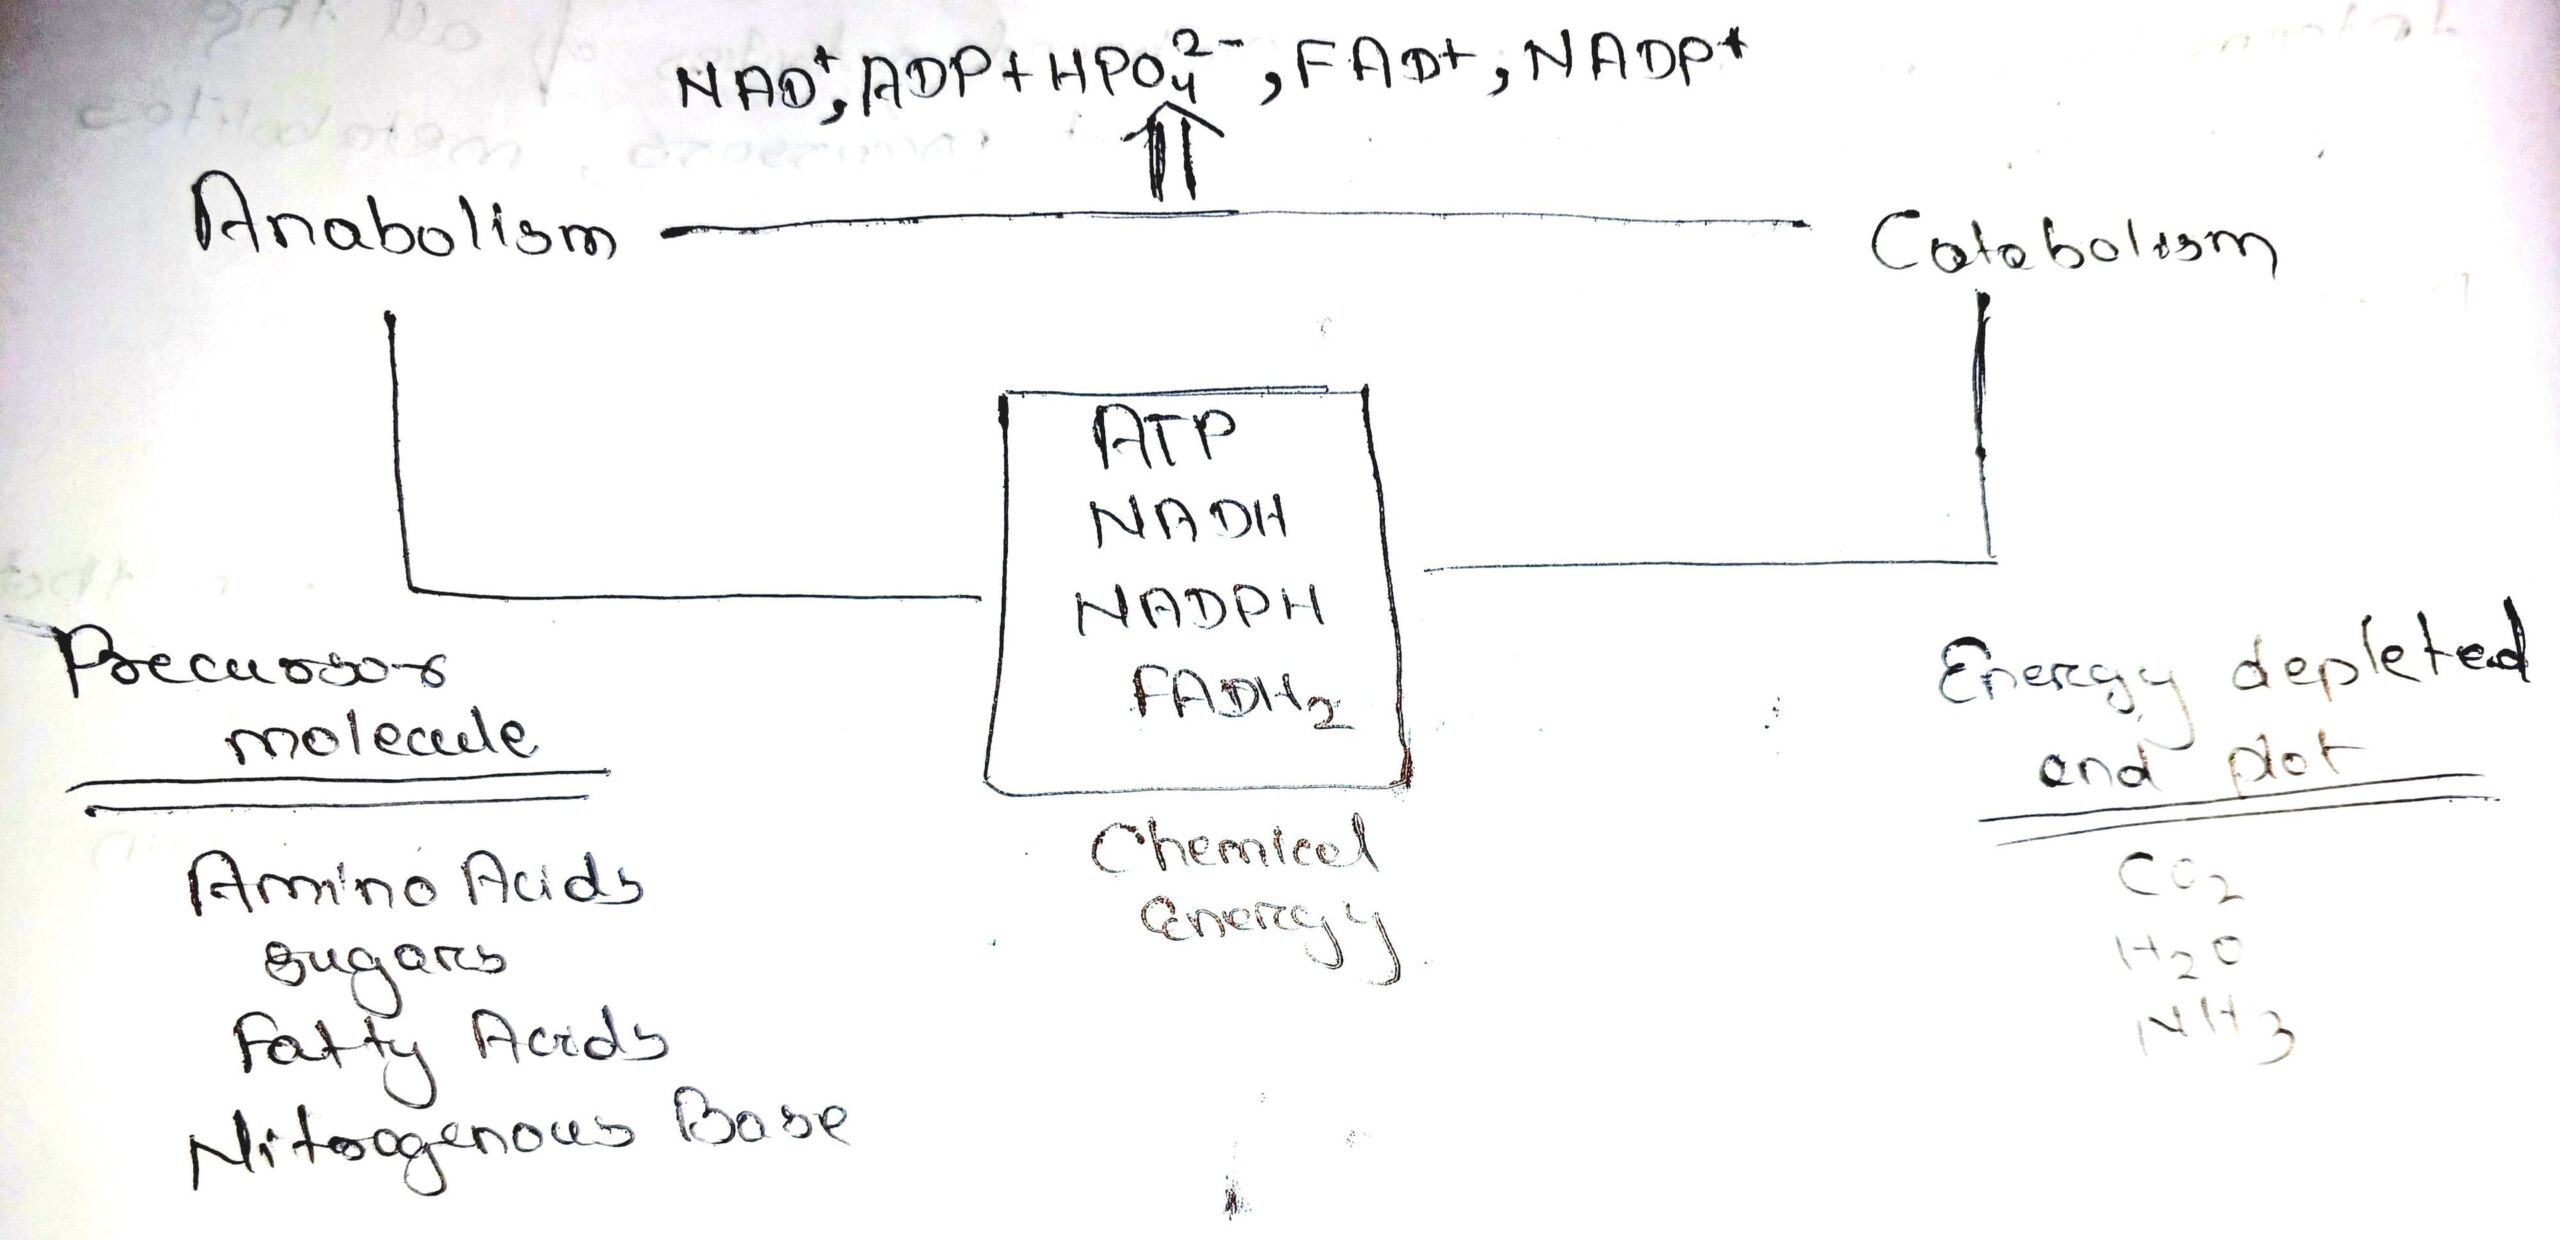 NAD⁺, ADP + HPO₄²⁻, FAD+, NADP+
Anabolism
Catabolism
ATP
NADH
NADPH
FADH₂
Precursor
molecule
Energy depleted
and plot
Chemical
Energy
Amino Acids
sugars
Fatty Acids
Nitrogenous Base
CO₂
H₂O
NH₃